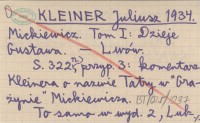 KLEINER Juljusz 1934.
Mickiewicz. Tom I: Dzieje
Gustawa. — Lwów.
S. 322, przyp. 3: komentarz
Kleinera o nazwie Tatry w "Gra-
żynie" Mickiewicza.
To samo w wyd. 2, Lub-